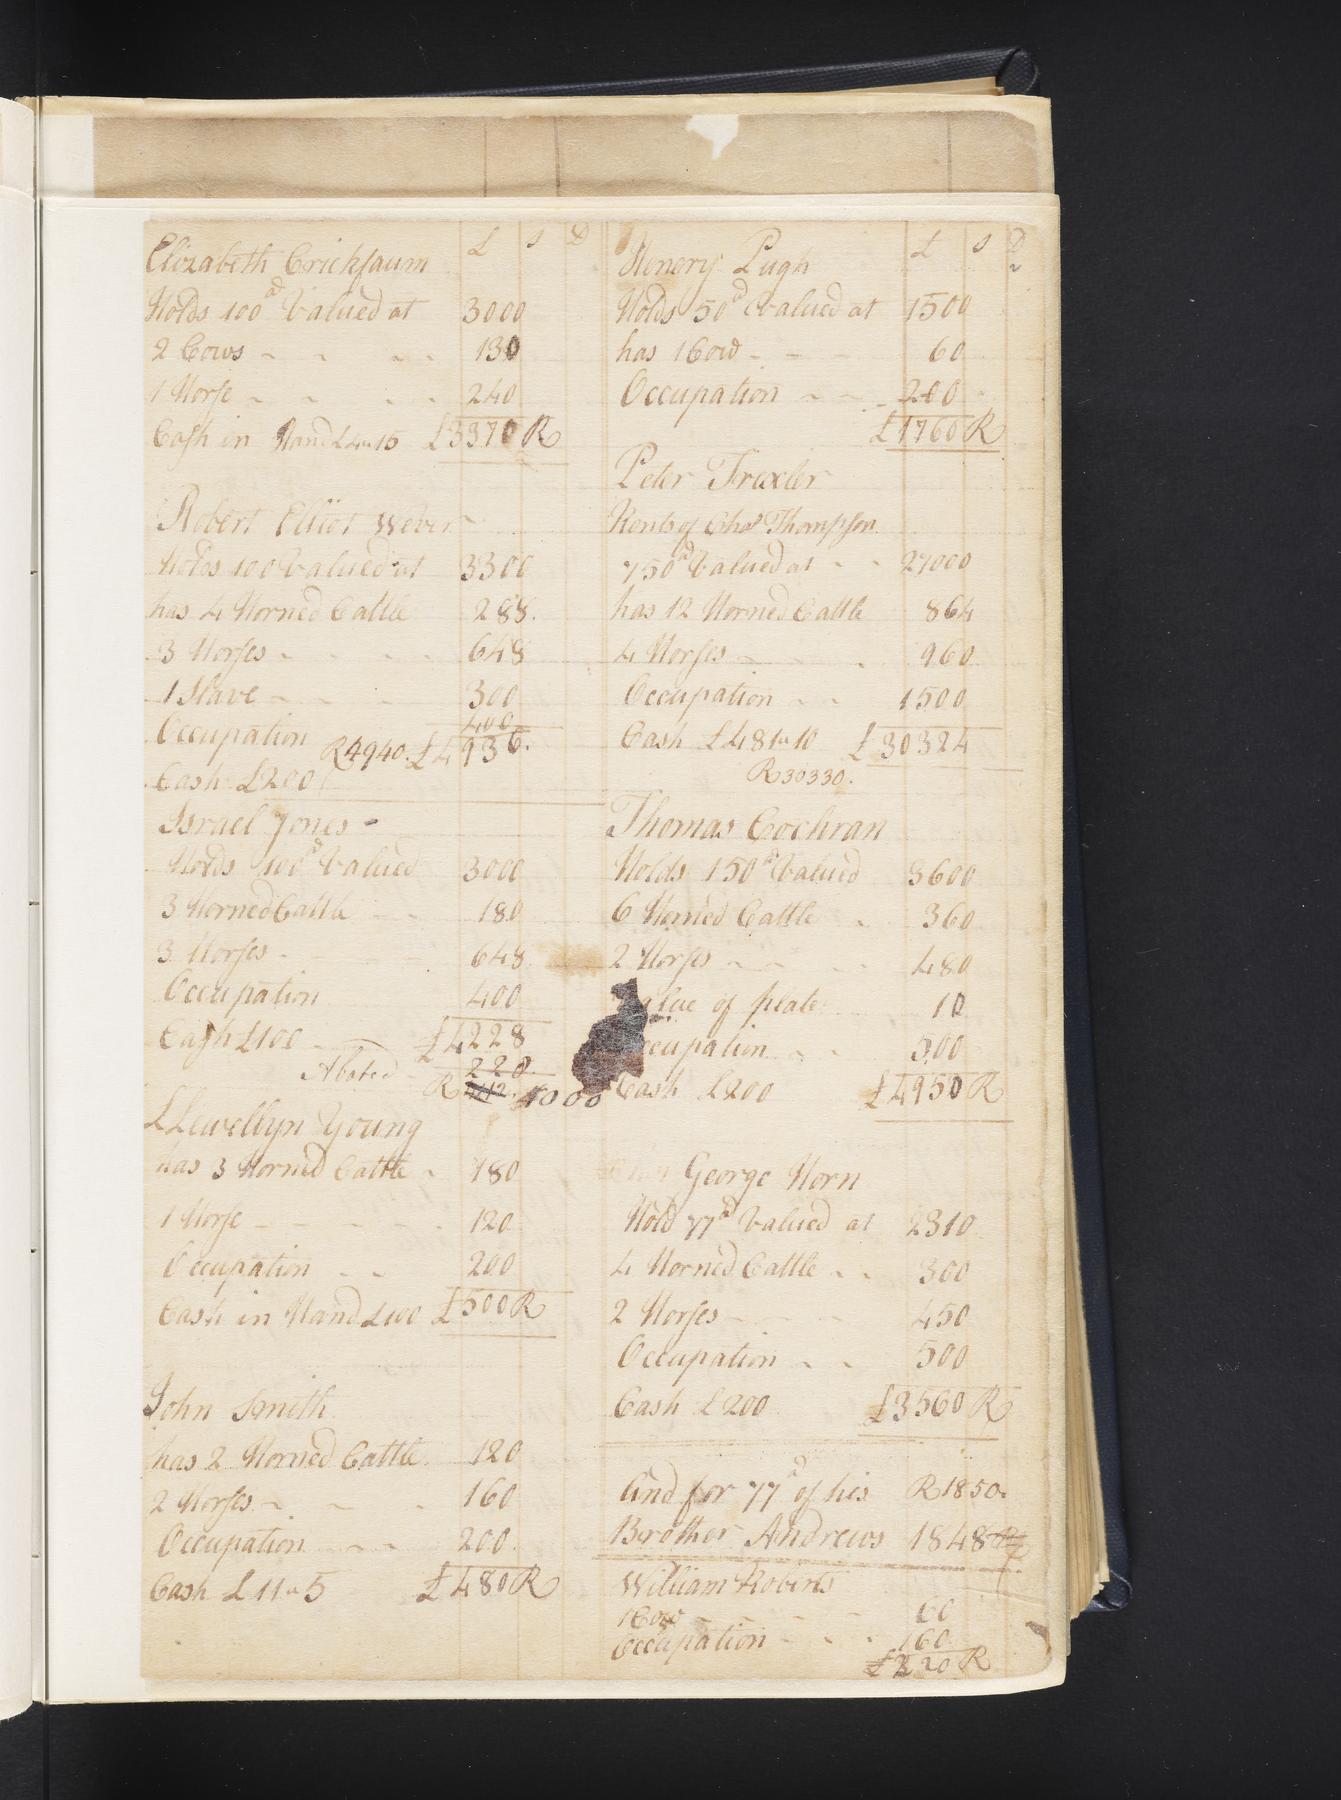 £ s D
Elizabeth Crickbaum
Holds 100ad Valued at 3000
2 Cows 130
1 Horse 240
Cash in Hand £4"15 £3370 R
Robert Elliot Wever
holds 100 Valued at 3300
has 4 Horned Cattle 288.
3 Horses 648
1 Slave 300
Occupation 400
R4940. £4936.
Cash £200
Israel Jones
Holds 100ad Valued 3000
3 Horned Cattle 180
3 Horses 648
Occupation 400
Cash £100 £4228
Abated 228
R 4000
LLewellyn Young
has 3 Horned Cattle 180
1 Horse 120
Occupation 200
Cash in Hand £100 £500 R
John Smith
has 2 Horned Cattle 120
2 Horses 160
Occupation 200
Cash £11"5 £480 R
£ s D
Henery Pugh
Holds 50ad Valued at 1500
has 1 Cow 60
Occupation 200
£1760 R
Peter Trexler
Rents of Chas Thompson
750ad Valued at 27000
has 12 Horned Cattle 864
4 Horses 960
Occupation 1500
Cash £481"10 £30324
R30330.
Thomas Cochran
Holds 150ad Valued 3600
6 Horned Cattle 360
2 Horses 480
Value of plate 10
Occupation 500
Cash £200 £4950 R
George Horn
Hold 77ad Valued at 2310
4 Horned Cattle 300
2 Horses 450
Occupation 500
Cash £200 £3560 R
And for 77ad of his R1850.
Brother Andrews 1848 R
William Roberts
1 Cow 60
Occupation 160
£220 R